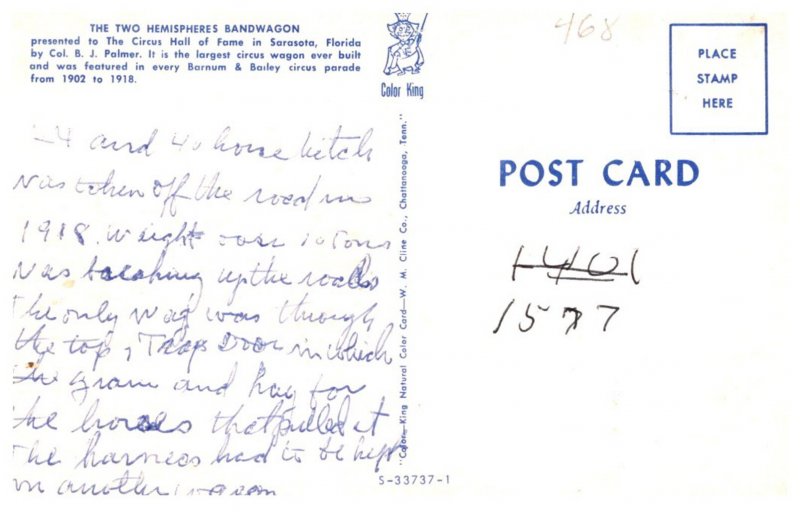 THE TWO HEMISPHERES BANDWAGON
presented to The Circus Hall of Fame in Sarasota, Florida
by Col. B. J. Palmer. It is the largest circus wagon ever built
and was featured in every Barnum & Bailey circus parade
from 1902 to 1918.
Color King
24 and 40 horse hitch
was taken off the road in
1918. Weight over 10 Tons
was breaking up the roads
the only way was through
the top, Trap Door in which
the grain and hay for
the horses that pulled it
The harness had to be kept
in another wagon
"Color-King Natural Color Card—W. M. Cline Co., Chattanooga, Tenn."
S-33737-1
468
PLACE
STAMP
HERE
POST CARD
Address
1401
1577